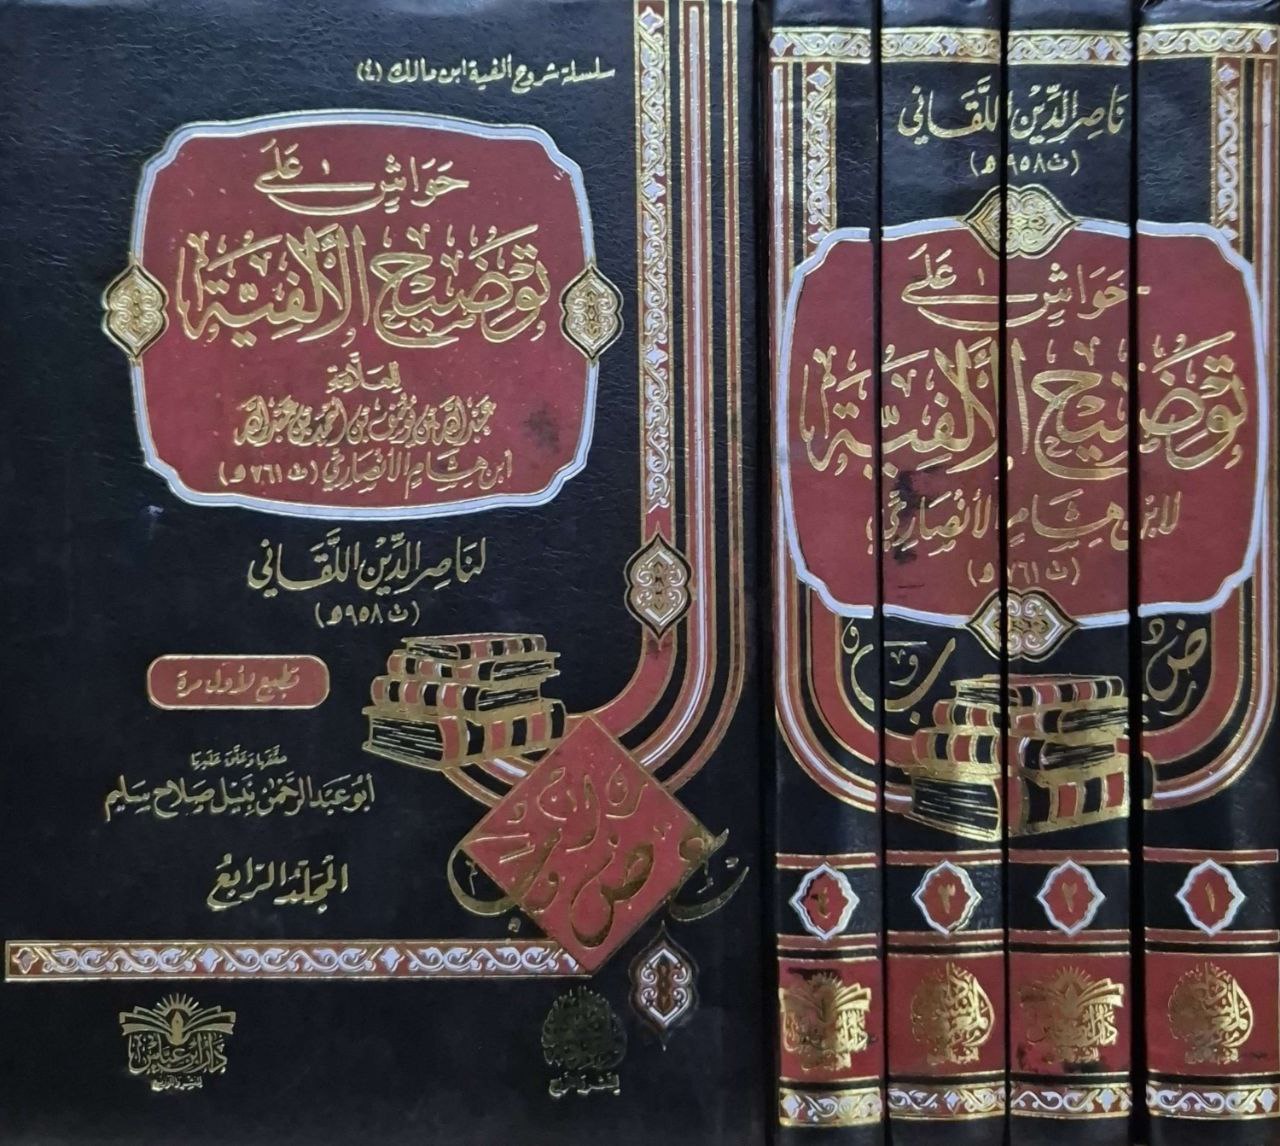 سلسلة شروح ألفية ابن مالك (٤)
حَوَاشٍ عَلَى
تَوْضِيحِ الأَلْفِيَّةِ
للعلامة
عبد الله بن يوسف بن أحمد بن عبد الله
ابن هشام الأنصاري (ت ٧٦١ هـ)
لناصر الدِّين اللَّقَاني
(ت ٩٥٨ هـ)
تطبع لأول مرة
حققها وعلق عليها
أبو عبد الرحمن نبيل صلاح سليم
المجلد الرابع
دار ابن عباس
للنشر والتوزيع
للنشر والتوزيع
ناصر الدِّين اللَّقَاني
(ت ٩٥٨ هـ)
حَوَاشٍ عَلَى
تَوْضِيحِ الأَلْفِيَّةِ
لابن هشام الأنصاري
(ت ٧٦١ هـ)
١
٢
٣
٤
دار ابن عباس
دار ابن عباس